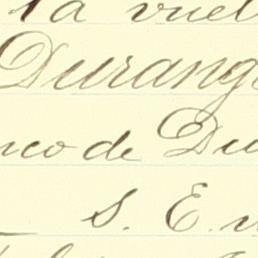 la vuel
Durang
nco de Du
S. E. u